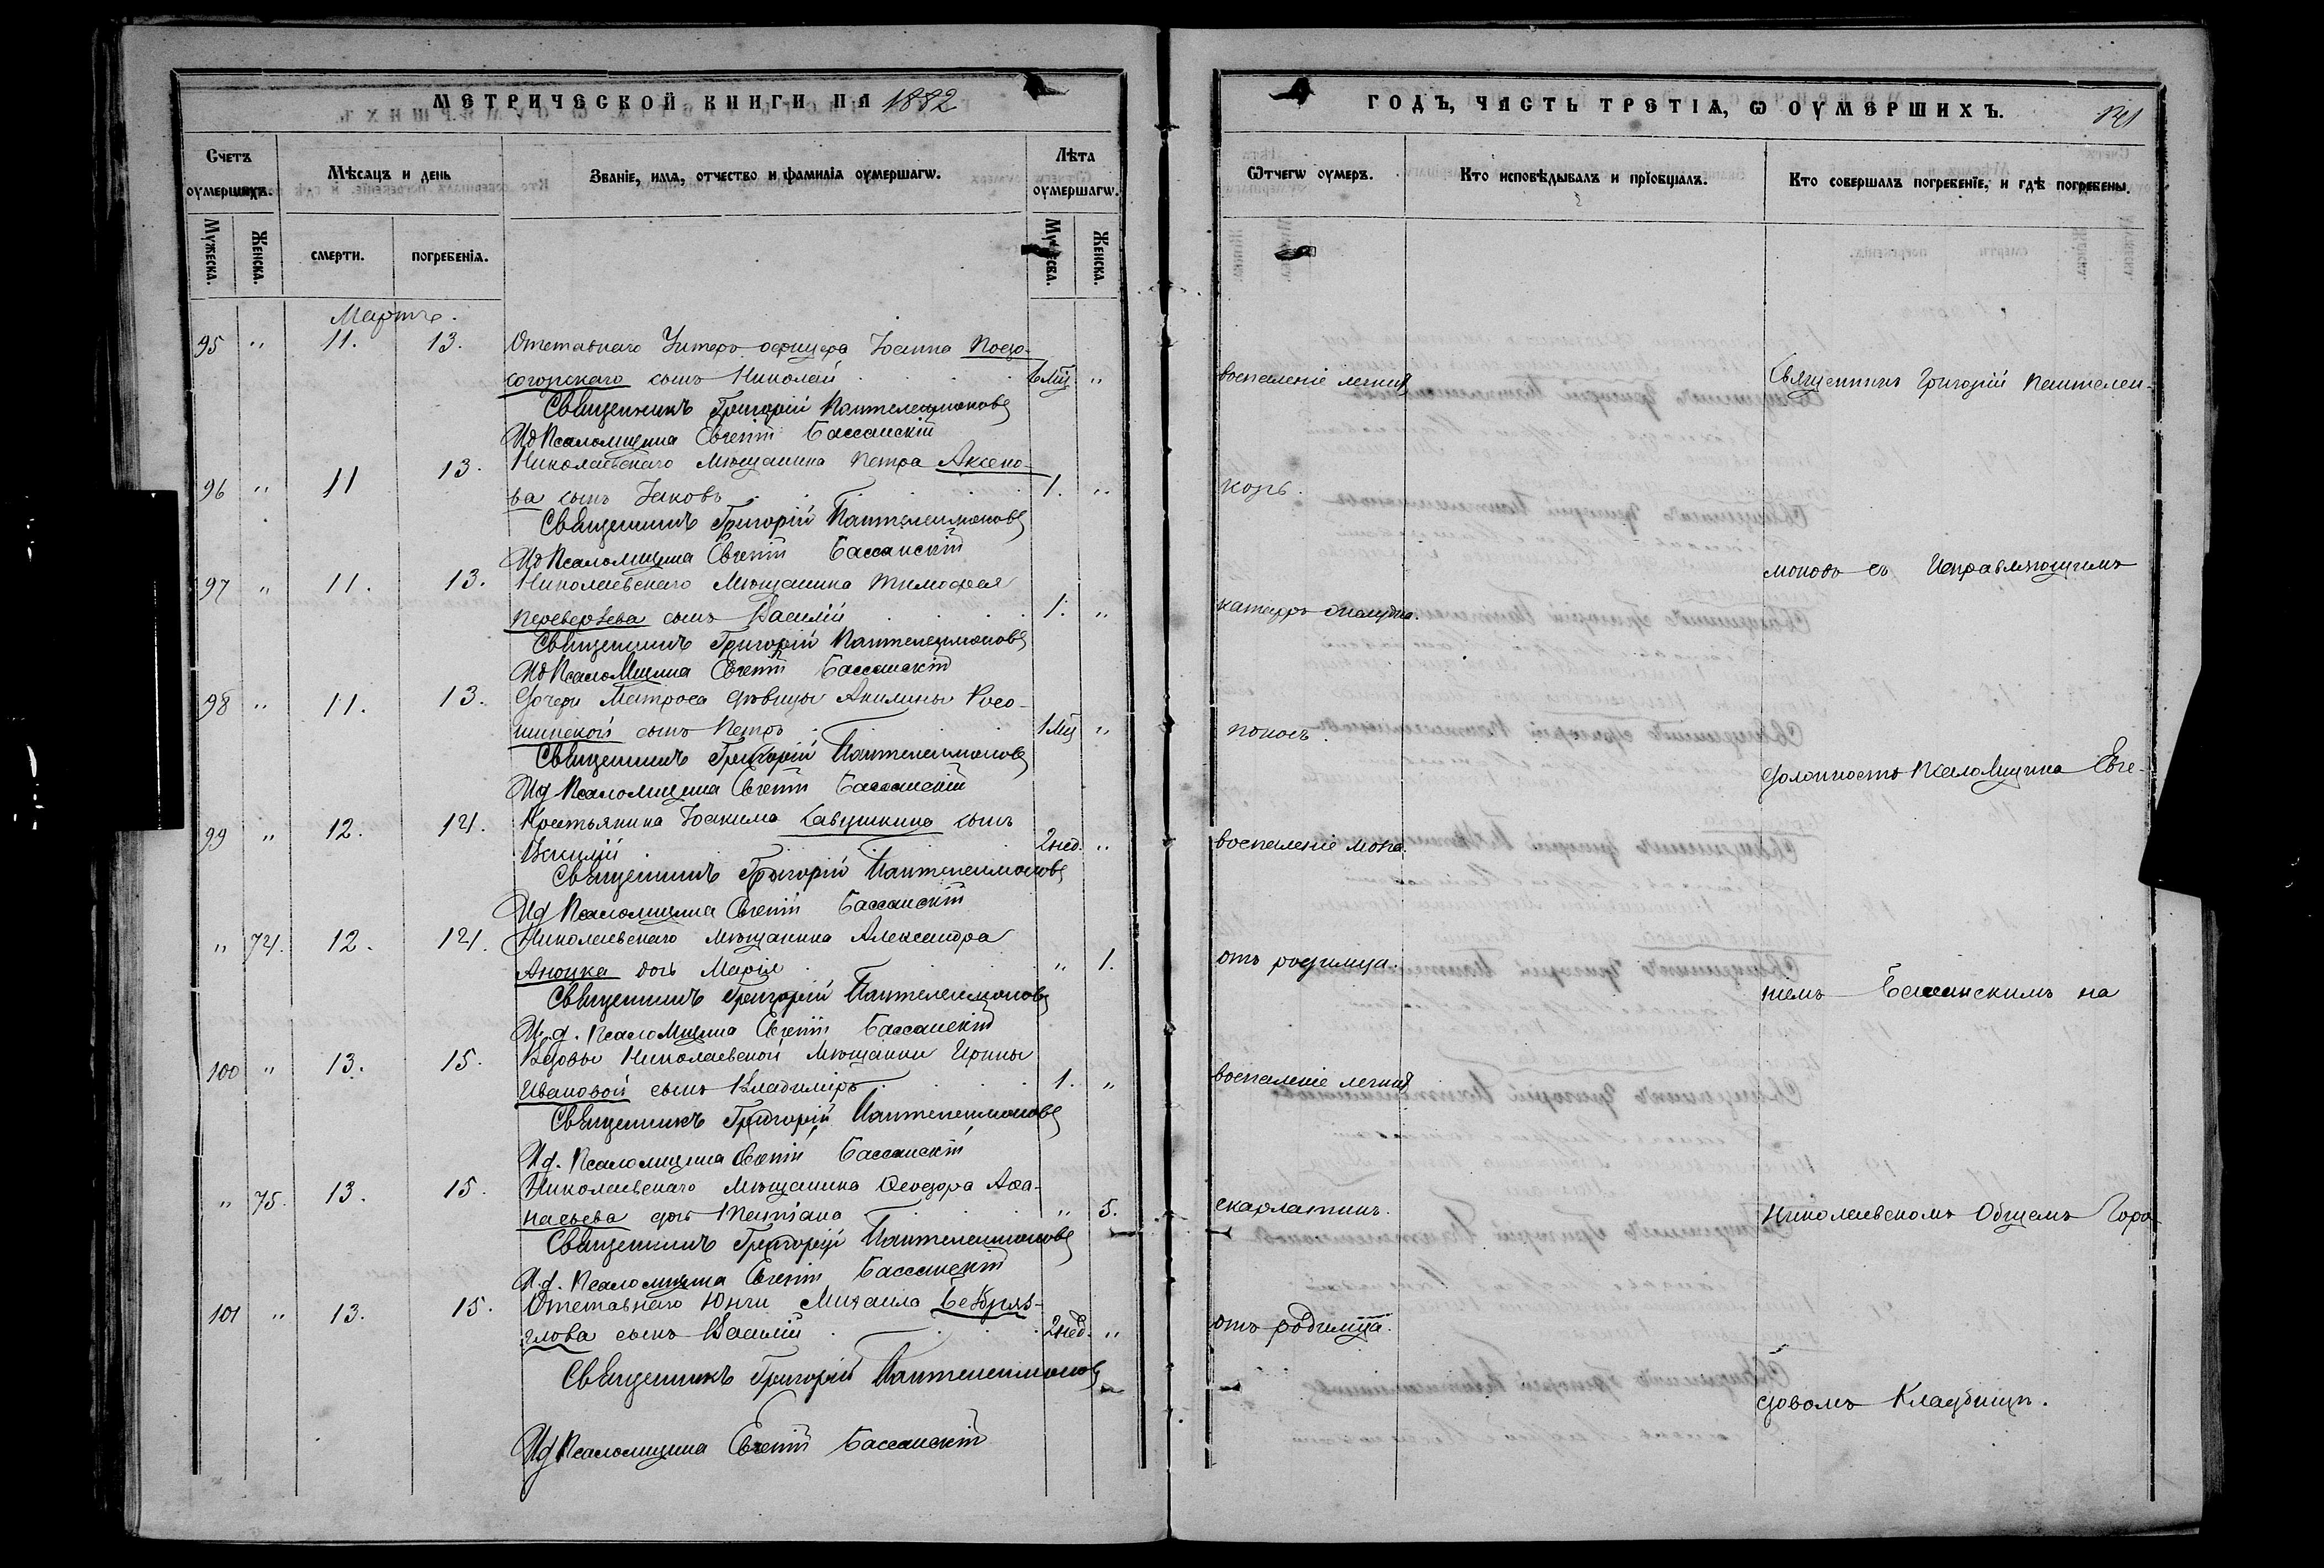 МЕТРИЧЕСКОЙ КНИГИ НА 1882
Счетъ оумершихъ.
Мѣсяцъ и день
Званіе, имя, отчество и фамилія оумершагѡ.
Лѣта оумершагѡ.
Мужеска.
Женска.
смерти.
погребенія.
Мужеска.
Женска.
Мартъ.
95 " 11. 13. Отставнаго Унтеръ офицера Іоанна
сын Николай 6 Мц. "
Священникъ Григорій Пантелеимоновъ
Ид Псаломщика Евгеній Бассанскій
96 " 11 13. Николаевскаго Мѣщанина Петра Аксено-
ва сынъ Іаковъ 1. "
Священникъ Григорій Пантелеимоновъ
Ид Псаломщика Евгеній Бассанскій
97 " 11. 13. Николаевскаго Мѣщанина Тимофея
Переверзева сынъ Василій 1. "
Священникъ Григорій Пантелеимоновъ
Ид Псаломщика Евгеній Бассанскій
98 " 11. 13. Дочери Матроса дѣвицы Акилины Росо-
шинской сынъ Петръ 1 Мц "
Священникъ Григорій Пантелеимоновъ
Ид Псаломщика Евгеній Бассанскій
99 " 12. 14. Крестьянина Іоакима Савушкина сынъ
2 нед. "
Священникъ Григорій Пантелеимоновъ
Ид Псаломщика Евгеній Бассанскій
" 74. 12. 14. Николаевскаго Мѣщанина Александра
дочь Марія " 1.
Священникъ Григорій Пантелеимоновъ
И.д. Псаломщика Евгеній Бассанскій
100 " 13. 15. Вдовы Николаевской Мѣщанки Ирины
Ивановой сынъ Владиміръ 1. "
Священникъ Григорій Пантелеимоновъ
Ид. Псаломщика Евгеній Бассанскій
" 75. 13. 15. Николаевскаго Мѣщанина Ѳеодора Аѳа-
насьева дочь Татіана " 5.
Священникъ Григорій Пантелеимоновъ
И.д. Псаломщика Евгеній Бассанскій
101 " 13. 15. Отставнаго Юнги Михаила
сынъ Василій 2 нед. "
Священникъ Григорій Пантелеимоновъ
Ид Псаломщика Евгеній Бассанскій
ГОДЪ, ЧАСТЬ ТРЕТІЯ, Ѡ ОУМЕРШИХЪ.
141
Ѿчегѡ оумеръ.
Кто исповѣдывалъ и пріобщалъ.
Кто совершалъ погребеніе, и гдѣ погребены.
воспаленіе легкихъ
Священникъ Григорій Пантелеи-
корь.
моновъ съ Исправляющимъ
катарръ желудка.
поносъ.
должность Псаломщика Евге-
воспаленіе мозга.
отъ родимца.
ніемъ Бассанскимъ на
воспаленіе легкихъ
скарлатинъ.
Николаевскомъ Общемъ Горо-
отъ родимца.
довомъ Кладбищѣ.